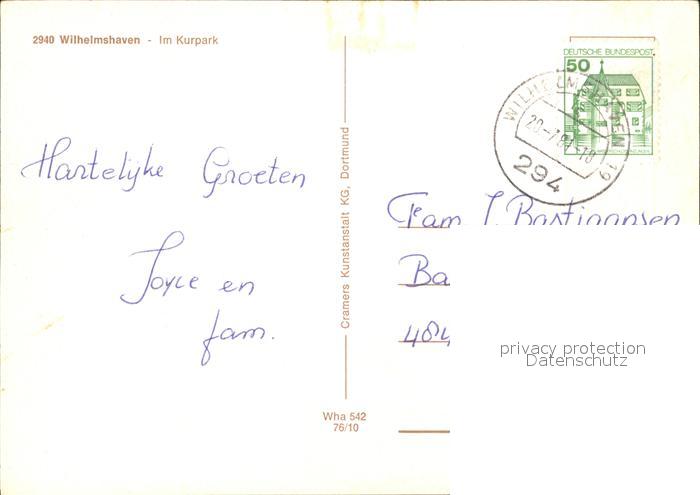 2940 Wilhelmshaven - Im Kurpark
Hartelijke Groeten
Joyce en
fam.
Cramers Kunstanstalt KG, Dortmund
Wha 542
76/10
DEUTSCHE BUNDESPOST
50
WILHELMSHAVEN 19
294
Fam J. Bastiaansen
Ba
484
privacy protection
Datenschutz